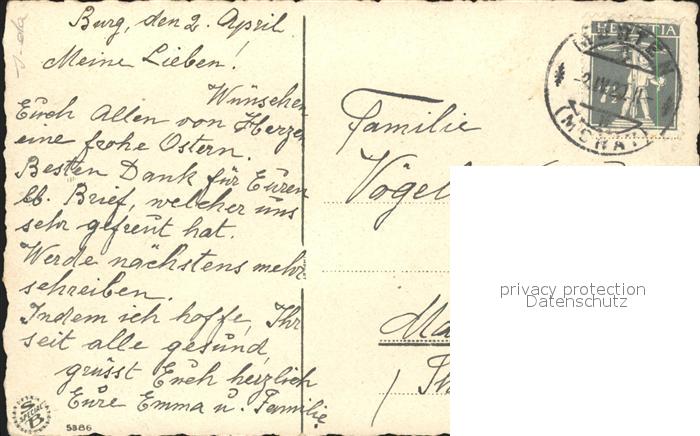 Burg, den 2. April.
Meine Lieben!
Wünschen
Euch Allen von Herzen
eine frohe Ostern.
Besten Dank für Euren
lb. Brief, welcher uns
sehr gefreut hat.
Werde nächstens mehr
schreiben.
Indem ich hoffe, Ihr
seit alle gesund,
grüsst Euch herzlich
Eure Emma u. Familie.
Familie
HELVETIA
MURTEN
(MORAT)
privacy protection
Datenschutz
S B
SPECIAL
5386